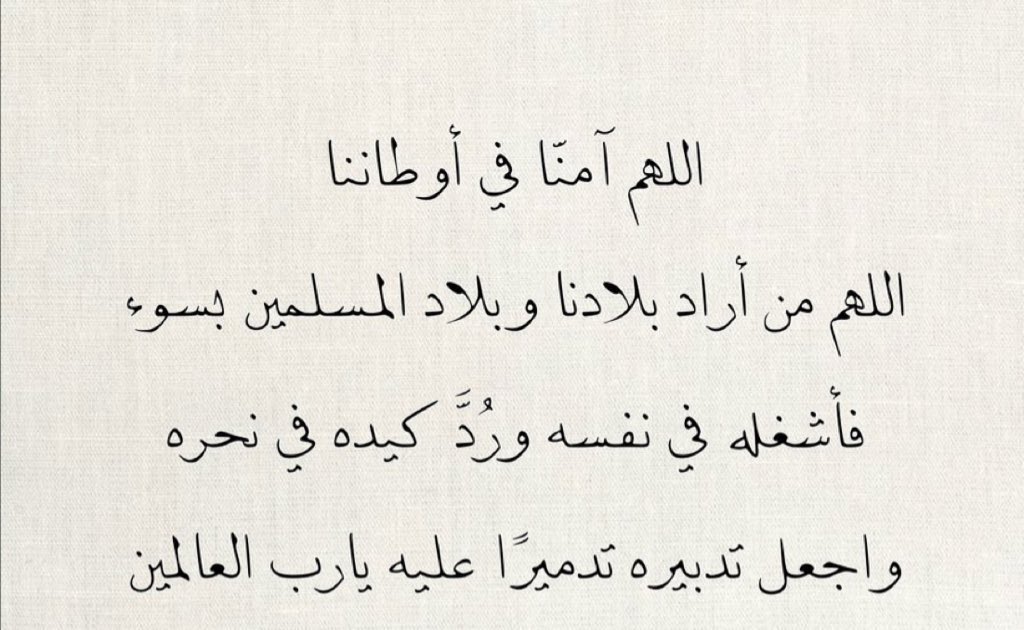 اللهم آمنّا في أوطاننا
اللهم من أراد بلادنا وبلاد المسلمين بسوء
فأشغله في نفسه ورُدَّ كيده في نحره
واجعل تدبيره تدميرًا عليه يارب العالمين